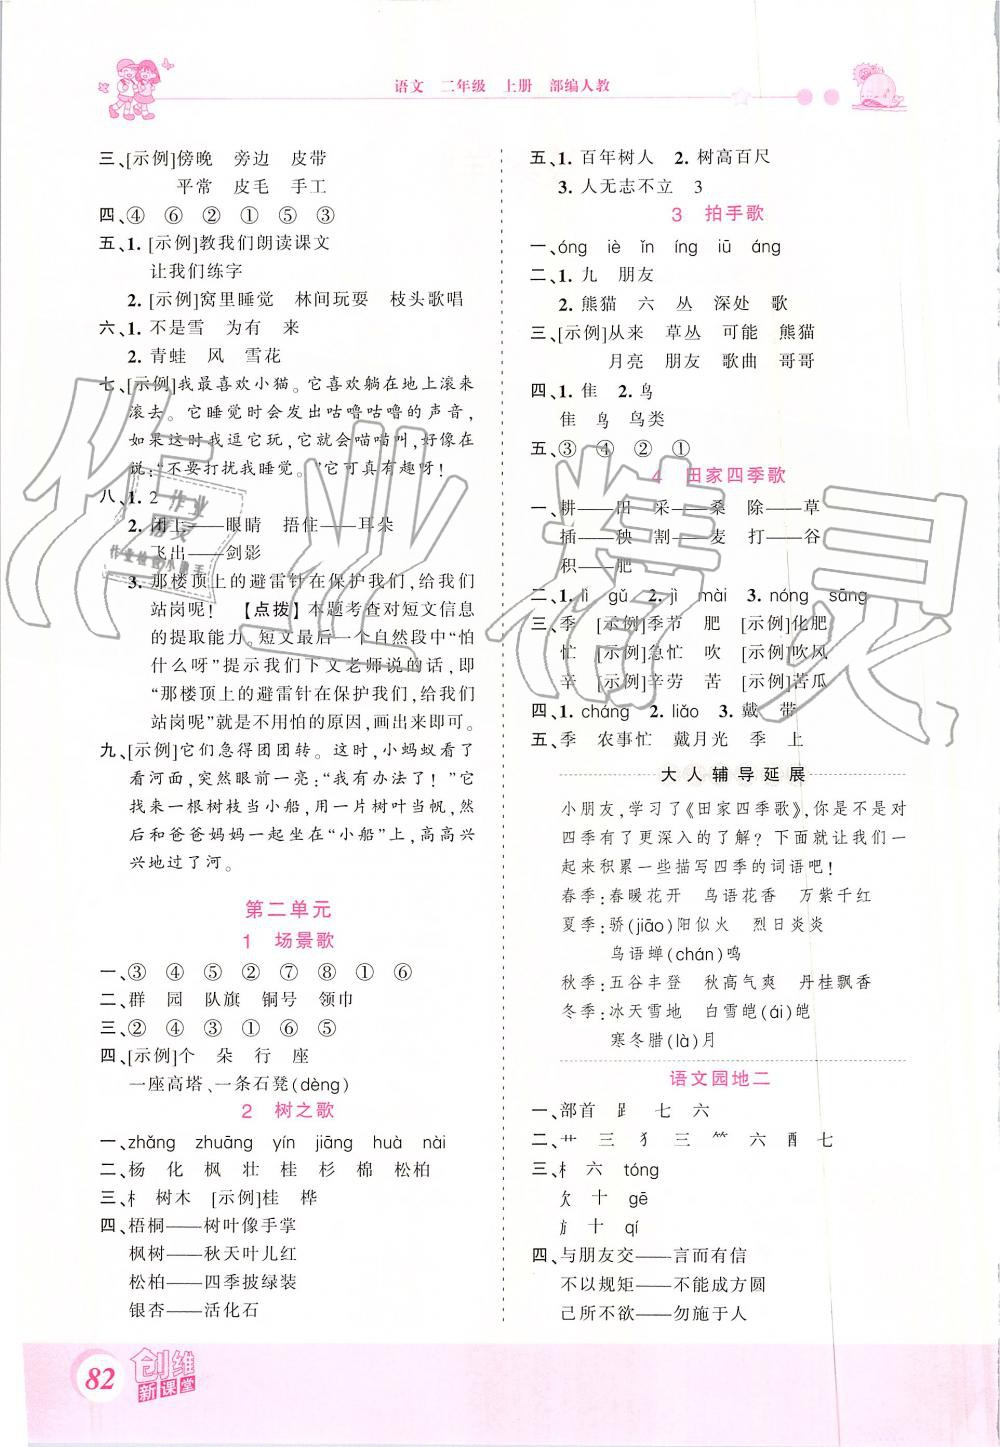 语文 二年级 上册 部编人教
三、[示例]傍晚 旁边 皮带
平常 皮毛 手工
四、④ ⑥ ② ① ⑤ ③
五、1. [示例]教我们朗读课文
让我们练字
2. [示例]窝里睡觉 林间玩耍 枝头歌唱
六、1. 不是雪 为有 来
2. 青蛙 风 雪花
七、[示例]我最喜欢小猫。它喜欢躺在地上滚来
滚去。它睡觉时会发出咕噜咕噜的声音,
如果这时我逗它玩,它就会喵喵叫,好像在
说:“不要打扰我睡觉。”它可真有趣呀!
八、1. 2
2. 闭上——眼睛 捂住——耳朵
飞出——剑影
3. 那楼顶上的避雷针在保护我们,给我们
站岗呢! 【点拨】本题考查对短文信息
的提取能力。短文最后一个自然段中“怕
什么呀”提示我们下文老师说的话,即
“那楼顶上的避雷针在保护我们,给我们
站岗呢”就是不用怕的原因,画出来即可。
九、[示例]它们急得团团转。这时,小蚂蚁看了
看河面,突然眼前一亮:“我有办法了!”它
找来一根树枝当小船,用一片树叶当帆,然
后和爸爸妈妈一起坐在“小船”上,高高兴
兴地过了河。
第二单元
1 场景歌
一、③ ④ ⑤ ② ⑦ ⑧ ① ⑥
二、群 园 队旗 铜号 领巾
三、② ④ ③ ① ⑥ ⑤
四、[示例]个 朵 行 座
一座高塔、一条石凳(dèng)
2 树之歌
一、zhǎng zhuāng yín jiāng huà nài
二、杨 化 枫 壮 桂 杉 棉 松柏
三、木 树木 [示例]桂 桦
四、梧桐——树叶像手掌
枫树——秋天叶儿红
松柏——四季披绿装
银杏——活化石
五、1. 百年树人 2. 树高百尺
3. 人无志不立 3
3 拍手歌
一、óng iè ǐn íng iū áng
二、1. 九 朋友
2. 熊猫 六 丛 深处 歌
三、[示例]从来 草丛 可能 熊猫
月亮 朋友 歌曲 哥哥
四、1. 隹 2. 鸟
隹 鸟 鸟类
五、③ ④ ② ①
4 田家四季歌
一、耕——田 采——桑 除——草
插——秧 割——麦 打——谷
积——肥
二、1. lì gǔ 2. jì mài 3. nóng sāng
三、季 [示例]季节 肥 [示例]化肥
忙 [示例]急忙 吹 [示例]吹风
辛 [示例]辛劳 苦 [示例]苦瓜
四、1. cháng 2. liǎo 3. 戴 带
五、季 农事忙 戴月光 季 上
大人辅导延展
小朋友,学习了《田家四季歌》,你是不是对
四季有了更深入的了解?下面就让我们一
起来积累一些描写四季的词语吧!
春季:春暖花开 鸟语花香 万紫千红
夏季:骄(jiāo)阳似火 烈日炎炎
鸟语蝉(chán)鸣
秋季:五谷丰登 秋高气爽 丹桂飘香
冬季:冰天雪地 白雪皑(ái)皑
寒冬腊(là)月
语文园地二
一、部首 𧾷 七 六
二、艹 三 犭 三 ⺮ 六 酉 七
三、木 六 tóng
欠 十 gē
方 十 qí
四、与朋友交——言而有信
不以规矩——不能成方圆
己所不欲——勿施于人
82
创维
新课堂
作业精灵